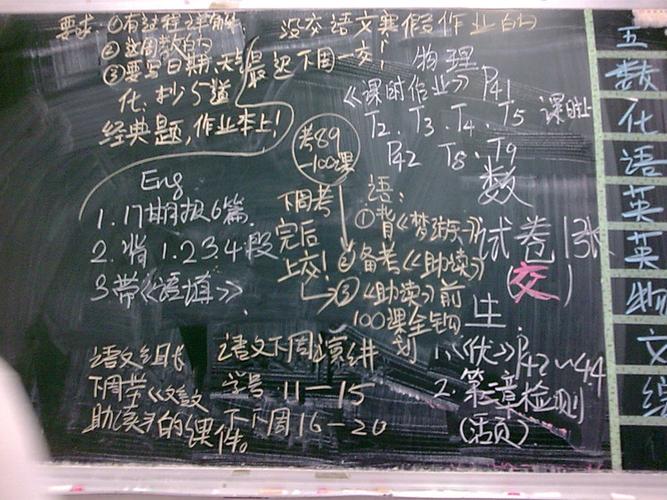 要求:①有过程详解
②这周教的
③要写日期,天
化:抄5道
经典题,作业本上!
没交语文寒假作业的
最迟下周一交!
物理
《课时作业》P41
T2、T3、T4、T5 课时
P42 T8、T9
考89
-100课
下周考
完后
上交!
Eng
1.17期报6篇
2.背1.2.3.4段
3.带《语填》
语:
①背《梦游》
②备考《助读》
③《助读》前
100课全
划
数
试卷1张
(交)
生
1.《优》P42~44
2.第二章检测
(活页)
语文组长
下周带
助读
的课件。
语文下周演讲
学号 11-15
下下周16-20
五
数
化
语
英
英
物
文